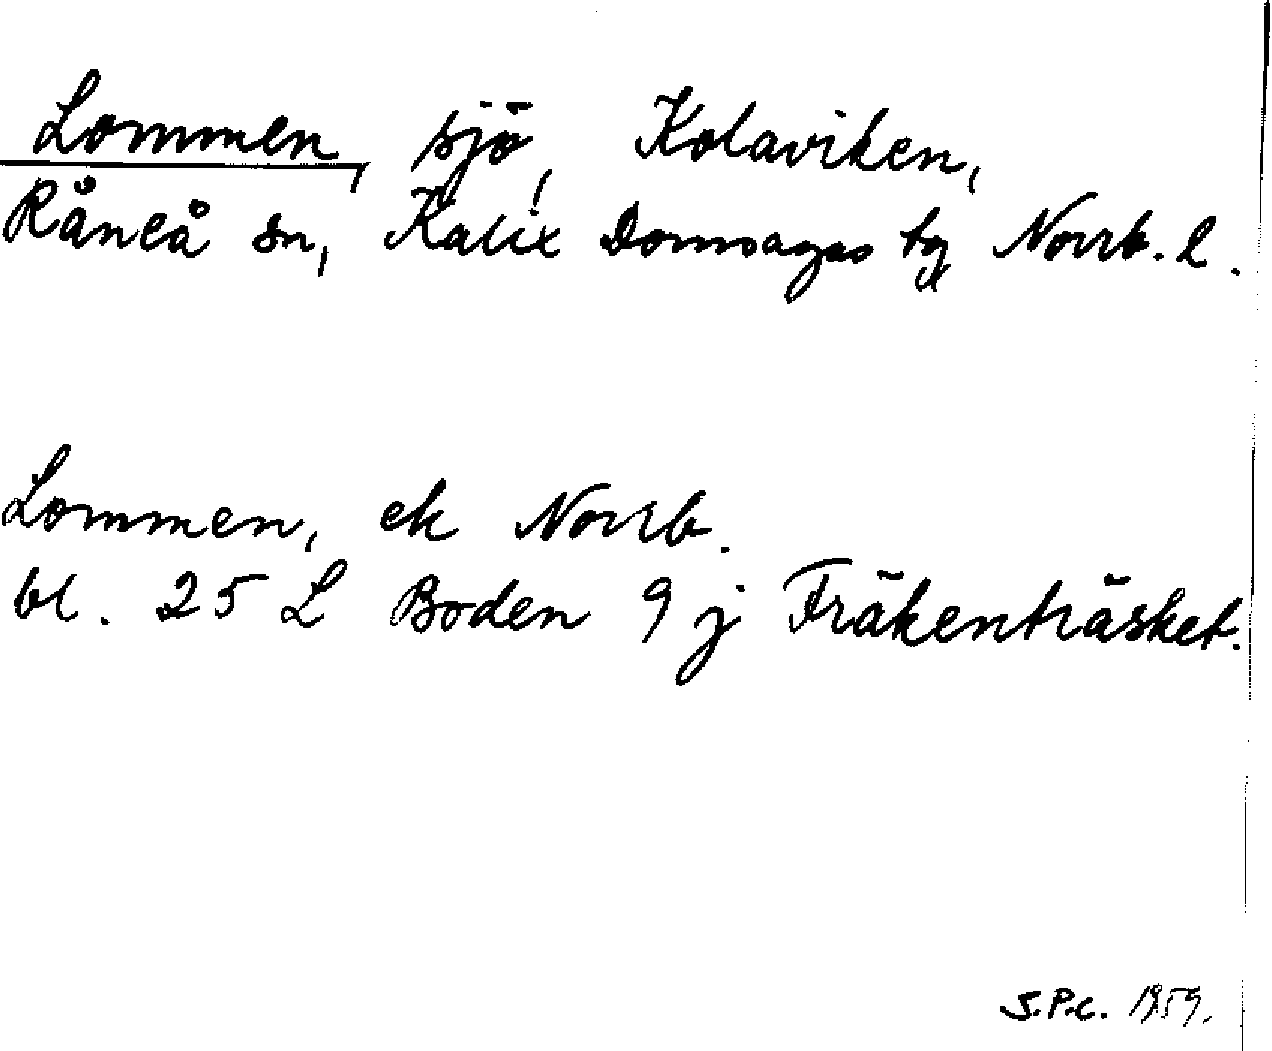 Lommen, sjö, Kolaviken,
Råneå sn, Kalix Domsagas tg Norrb. l.
Lommen, ek Norrb.
bl. 25 L Boden 9 j Fräkenträsket.
S.P.C. 1959.